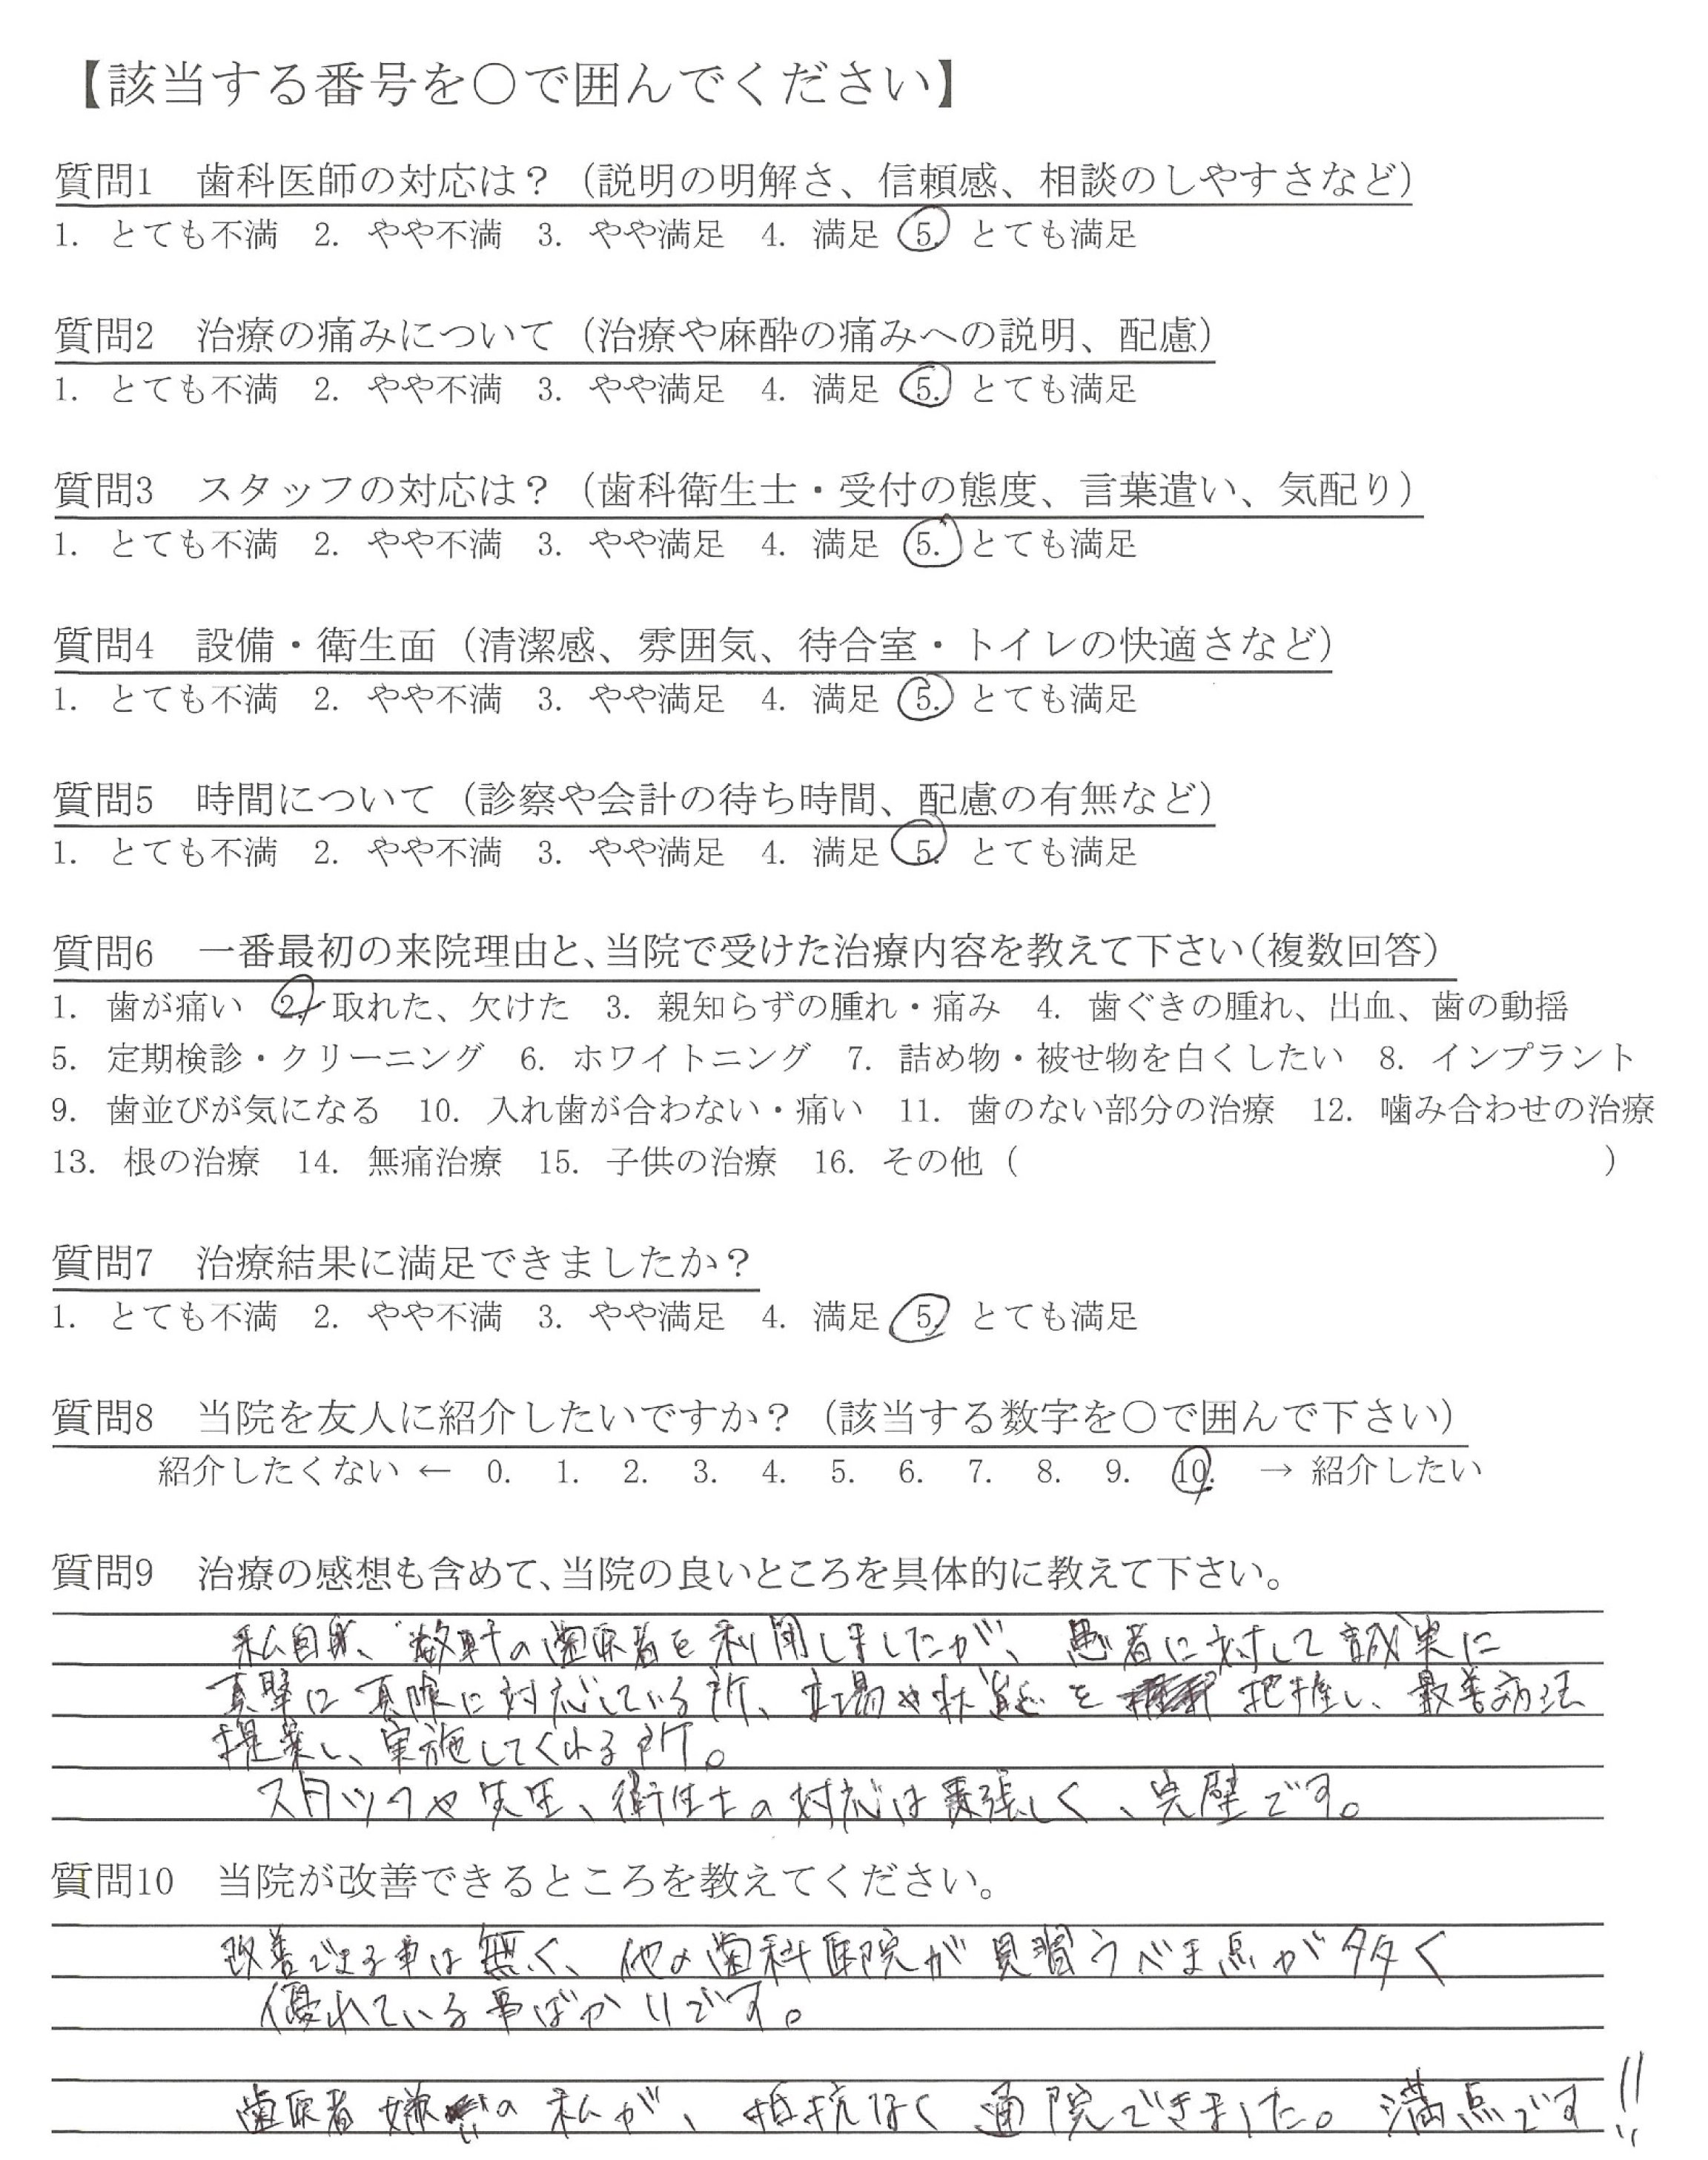 【該当する番号を○で囲んでください】
質問1 歯科医師の対応は？（説明の明解さ、信頼感、相談のしやすさなど）
1. とても不満 2. やや不満 3. やや満足 4. 満足 5. とても満足
質問2 治療の痛みについて（治療や麻酔の痛みへの説明、配慮）
1. とても不満 2. やや不満 3. やや満足 4. 満足 5. とても満足
質問3 スタッフの対応は？（歯科衛生士・受付の態度、言葉遣い、気配り）
1. とても不満 2. やや不満 3. やや満足 4. 満足 5. とても満足
質問4 設備・衛生面（清潔感、雰囲気、待合室・トイレの快適さなど）
1. とても不満 2. やや不満 3. やや満足 4. 満足 5. とても満足
質問5 時間について（診察や会計の待ち時間、配慮の有無など）
1. とても不満 2. やや不満 3. やや満足 4. 満足 5. とても満足
質問6 一番最初の来院理由と、当院で受けた治療内容を教えて下さい（複数回答）
1. 歯が痛い 2. 取れた、欠けた 3. 親知らずの腫れ・痛み 4. 歯ぐきの腫れ、出血、歯の動揺
5. 定期検診・クリーニング 6. ホワイトニング 7. 詰め物・被せ物を白くしたい 8. インプラント
9. 歯並びが気になる 10. 入れ歯が合わない・痛い 11. 歯のない部分の治療 12. 噛み合わせの治療
13. 根の治療 14. 無痛治療 15. 子供の治療 16. その他（ ）
質問7 治療結果に満足できましたか？
1. とても不満 2. やや不満 3. やや満足 4. 満足 5. とても満足
質問8 当院を友人に紹介したいですか？（該当する数字を○で囲んで下さい）
紹介したくない ← 0. 1. 2. 3. 4. 5. 6. 7. 8. 9. 10. → 紹介したい
質問9 治療の感想も含めて、当院の良いところを具体的に教えて下さい。
私自身、数軒の歯医者を利用しましたが、患者に対して誠実に
真摯に 対応している所、立場や状態を 把握し、最善
提案し、実施してくれる所。
スタッフや先生、衛生士の対応は素晴しく、完璧です。
質問10 当院が改善できるところを教えてください。
改善できる事は無く、他の歯科医院が見習うべき点が多く
優れている事ばかりです。
歯医者嫌いの私が、抵抗なく通院できました。満点です!!